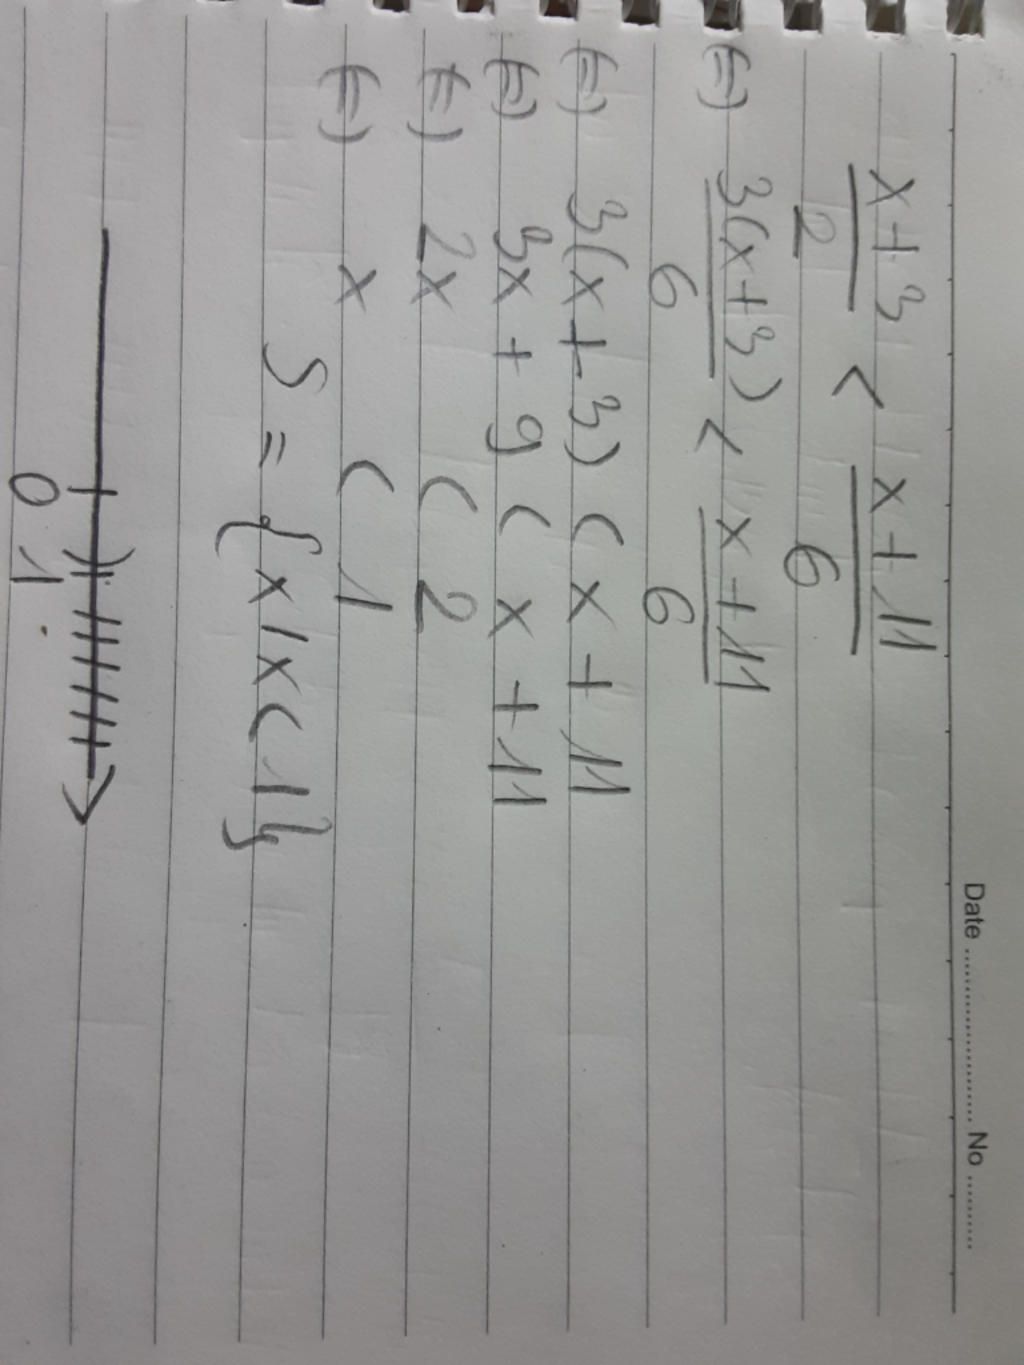 Date .................... No ..........
x + 3 < x + 11
2 6
(=) 3(x+3) < x + 11
6 6
(=) 3(x + 3) < x + 11
(=) 3x + 9 < x + 11
(=) 2x < 2
(=) x < 1
S = {x/x<1}
0 1